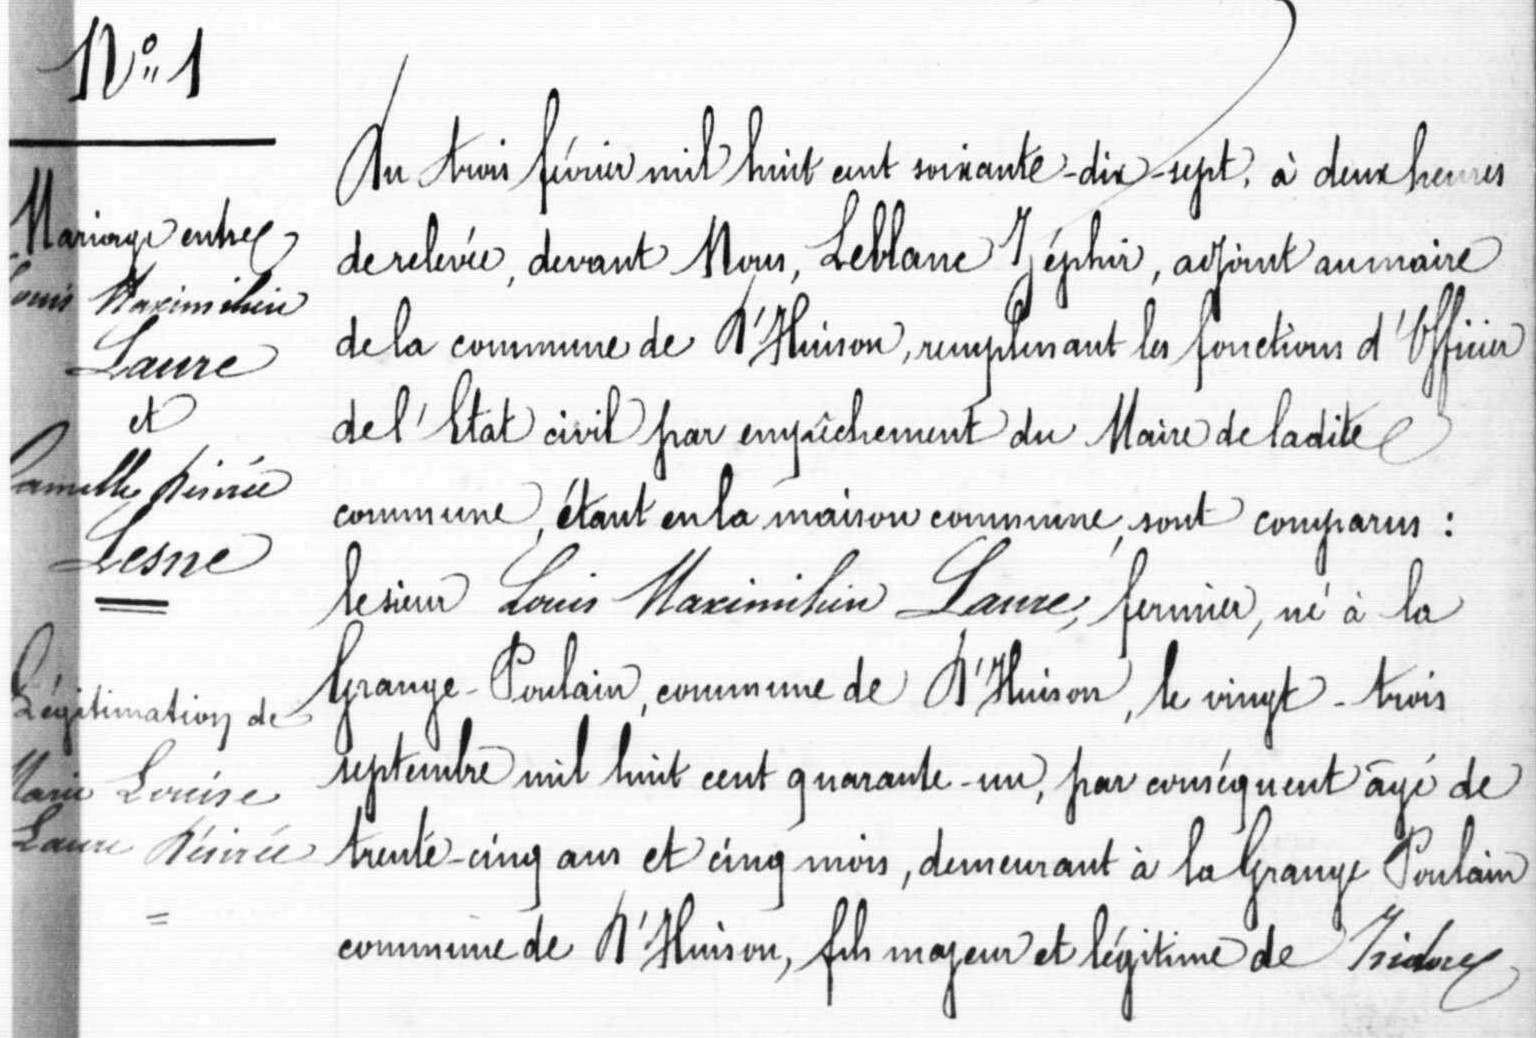 N° 1
Mariage entre
Louis Maximilien
Laure
et
Camille Désirée
Lesne
Légitimation de
Marie Louise
Laure Désirée
Du trois février mil huit cent soixante-dix-sept, à deux heures
de relevée, devant Nous, Leblanc Zéphir, adjoint au maire
de la commune de D'Huison, remplissant les fonctions d'Officier
de l'Etat civil par empêchement du Maire de ladite
commune, étant en la maison commune, sont comparus :
le sieur Louis Maximilien Laure, fermier, né à la
Grange-Poulain, commune de D'Huison, le vingt-trois
septembre mil huit cent quarante-un, par conséquent âgé de
trente-cinq ans et cinq mois, demeurant à la Grange Poulain
commune de D'Huison, fils majeur et légitime de Isidore